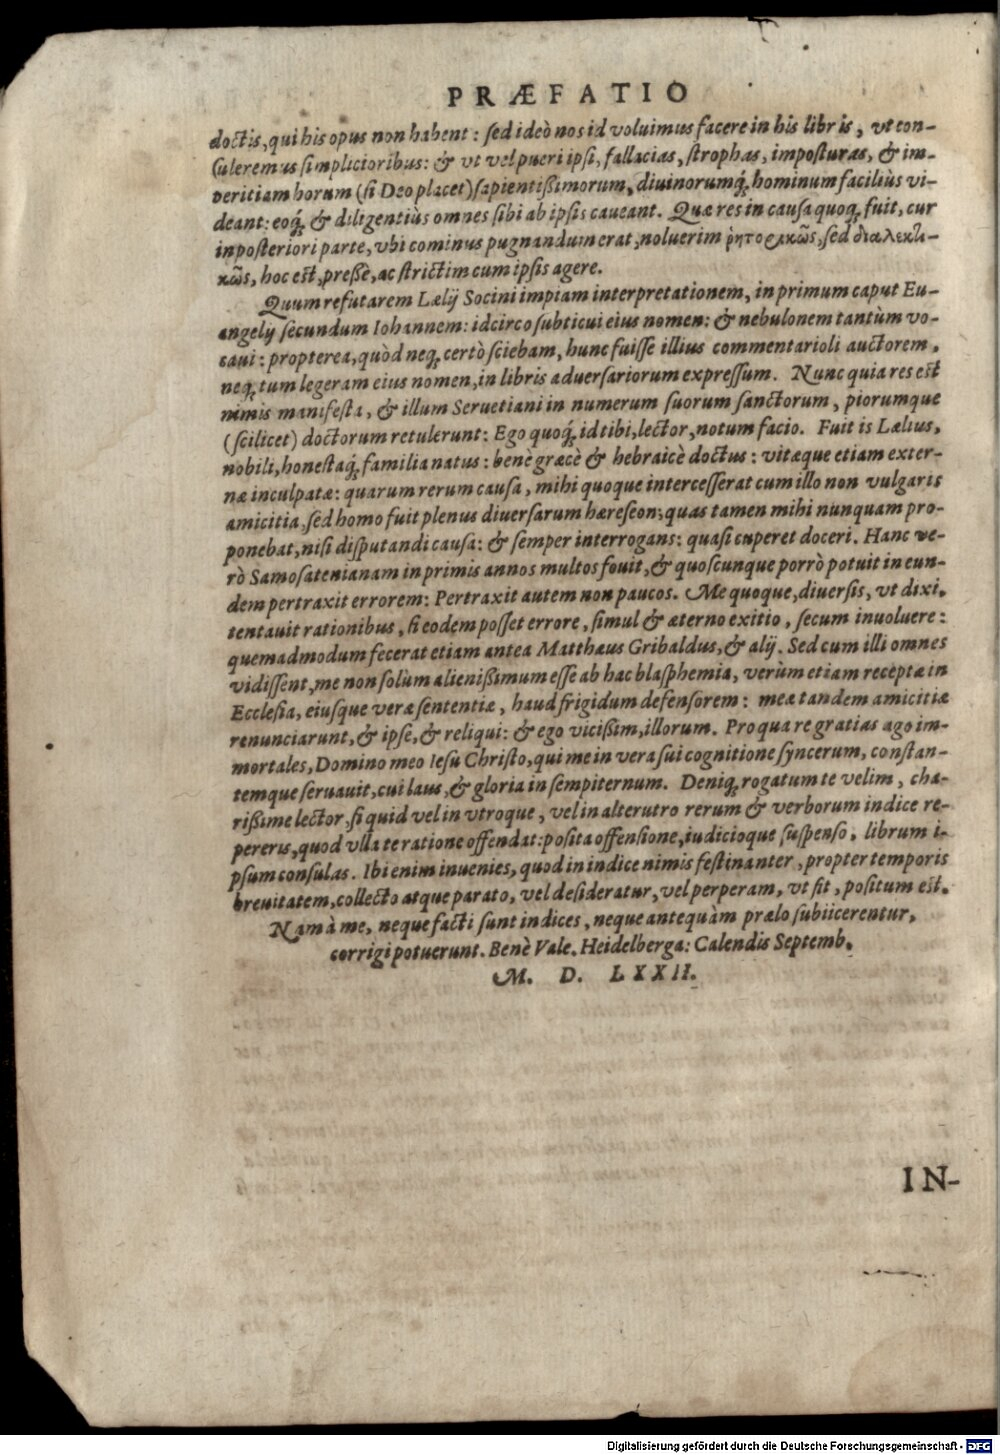 PRÆFATIO
doctis, qui his opus non habent: sed ideò nos id voluimus facere in his libris, vt con-
suleremus simplicioribus: & vt vel pueri ipsi, fallacias, strophas, imposturas, & im-
peritiam horum (si Deo placet) sapientißimorum, diuinorumq́; hominum faciliùs vi-
deant: eoq́; & diligentiùs omnes sibi ab ipsis caueant. Quæ res in causa quoq; fuit, cur
in posteriori parte, vbi cominus pugnandum erat, noluerim ῥητορικῶς, sed διαλεκτι-
κῶς, hoc est, preßè, ac strictim cum ipsis agere.
Quum refutarem Lælij Socini impiam interpretationem, in primum caput Eu-
angelij secundum Iohannem: idcirco subticui eius nomen: & nebulonem tantùm vo-
caui: propterea, quòd neq; certò sciebam, hunc fuisse illius commentarioli auctorem,
neq; tum legeram eius nomen, in libris aduersariorum expressum. Nunc quia res est
nimis manifesta, & illum Seruetiani in numerum suorum sanctorum, piorumque
(scilicet) doctorum retulerunt: Ego quoq́; id tibi, lector, notum facio. Fuit is Lælius,
nobili, honestaq́; familia natus: benè græcè & hebraicè doctus: vitæque etiam exter-
næ inculpatæ: quarum rerum causa, mihi quoque intercesserat cum illo non vulgaris
amicitia, sed homo fuit plenus diuersarum hæreseon, quas tamen mihi nunquam pro-
ponebat, nisi disputandi causa: & semper interrogans: quasi cuperet doceri. Hanc ve-
rò Samosatenianam inprimis annos multos fouit, & quoscunque porrò potuit in eun-
dem pertraxit errorem: Pertraxit autem non paucos. Me quoque, diuersis, vt dixi,
tentauit rationibus, si eodem posset errore, simul & æterno exitio, secum inuoluere:
quemadmodum fecerat etiam antea Matthæus Gribaldus, & alij. Sed cum illi omnes
vidissent, me non solùm alienißimum esse ab hac blasphemia, verùm etiam receptæ in
Ecclesia, eiusque veræ sententiæ, haud frigidum defensorem: meæ tandem amicitiæ
renunciarunt, & ipse, & reliqui: & ego vicißim, illorum. Pro qua re gratias ago im-
mortales, Domino meo Iesu Christo, qui me in vera sui cognitione syncerum, constan-
temque seruauit, cui laus, & gloria in sempiternum. Deniq; rogatum te velim, cha-
rißime lector, si quid vel in vtroque, vel in alterutro rerum & verborum indice re-
pereris, quod vlla te ratione offendat: posita offensione, iudicioque suspenso, librum i-
psum consulas. Ibi enim inuenies, quod in indice nimis festinanter, propter temporis
breuitatem, collecto atque parato, vel desideratur, vel perperam, vt fit, positum est.
Nam à me, neque facti sunt indices, neque antequàm prælo subiicerentur,
corrigi potuerunt. Benè Vale. Heidelbergæ: Calendis Septemb.
M. D. LXXII.
IN-
Digitalisierung gefördert durch die Deutsche Forschungsgemeinschaft - DFG